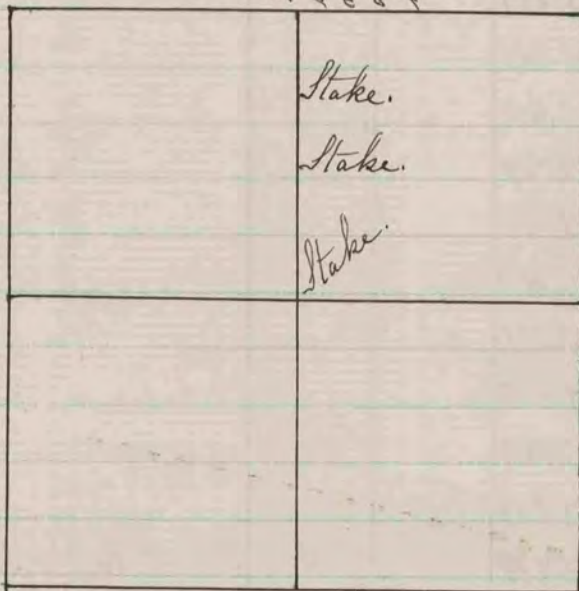 Stake.
Stake.
Stake.